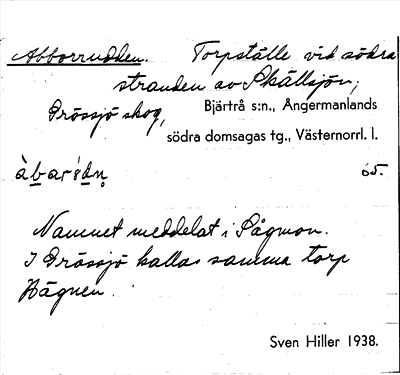 Abborrudden. Torpställe vid södra
stranden av Skällsjön,
Grössjö skog, Bjärtrå s:n., Ångermanlands
södra domsagas tg., Västernorrl. l.
65.
Namnet meddelat i Sågmon.
I Grössjö kallas samma torp
Hägnen.
Sven Hiller 1938.